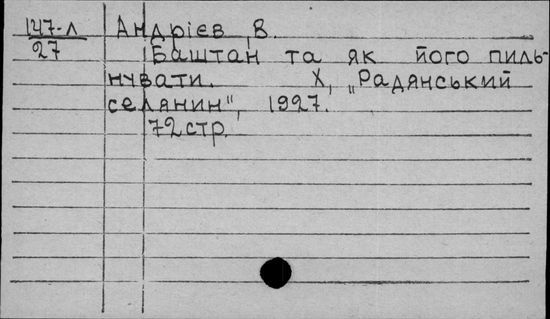 147-л Андрієв, В.
27 Баштан та як його пиль-
нувати. Х, „Радянський
селянин", 1927.
72 стр.